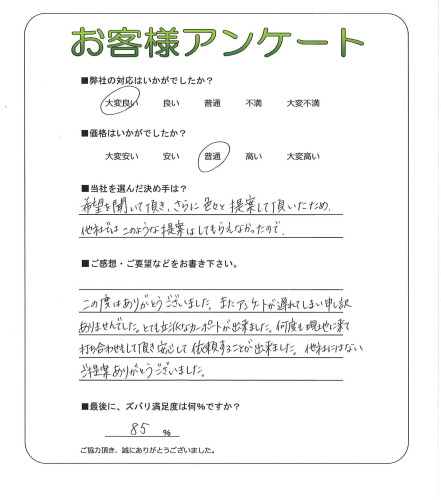 お客様アンケート
■弊社の対応はいかがでしたか？
大変良い 良い 普通 不満 大変不満
■価格はいかがでしたか？
大変安い 安い 普通 高い 大変高い
■当社を選んだ決め手は？
希望を聞いて頂き、さらに色々と提案して頂いたため、
他社ではこのような提案はしてもらえなかったので、
■ご感想・ご要望などをお書き下さい。
この度はありがとうございました。またアンケートが遅れてしまい申し訳
ありませんでした。とても立派なカーポートが出来ました。何度も現地に来て
打ち合わせもして頂き安心して依頼することが出来ました。他社にはない
ご提案ありがとうございました。
■最後に、ズバリ満足度は何%ですか？
85 %
ご協力頂き、誠にありがとうございました。